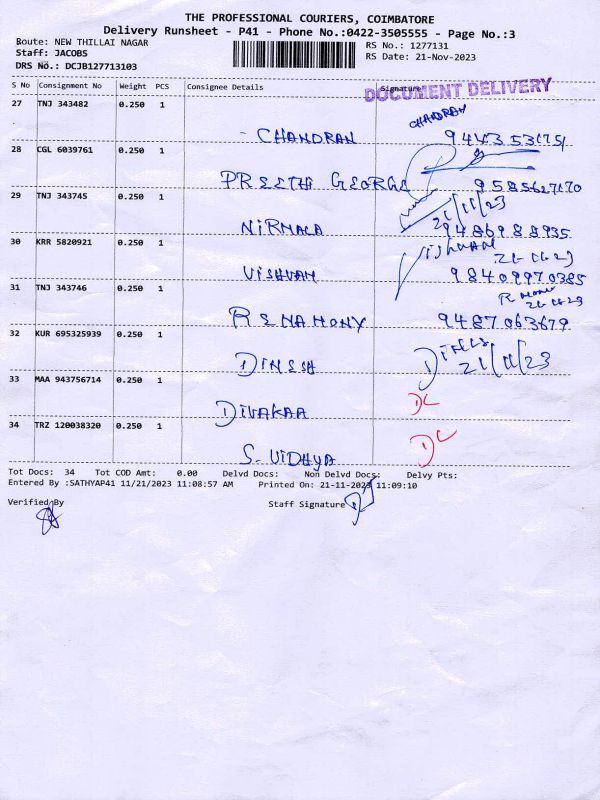 THE PROFESSIONAL COURIERS, COIMBATORE
Delivery Runsheet - P41 - Phone No.:0422-3505555 - Page No.:3
Route: NEW THILLAI NAGAR
Staff: JACOBS
DRS No.: DCJB127713103
RS No.: 1277131
RS Date: 21-Nov-2023
S No Consignment No Weight PCS Consignee Details Signature
DOCUMENT DELIVERY
27 TNJ 343482 0.250 1
CHANDRAN
- CHANDRAN
28 CGL 6039761 0.250 1
PREETHA GEORGE 9585627170
29 TNJ 343745 0.250 1
21/11/23
NIRMALA 9486988935
30 KRR 5820921 0.250 1
21-11-23
VISHVAM 98409970385
31 TNJ 343746 0.250 1
21-11-23
9487063679
32 KUR 695325939 0.250 1
DINESH
21/11/23
33 MAA 943756714 0.250 1
DIVAKAA DL
34 TRZ 120038320 0.250 1
S. VIDHYA DL
Tot Docs: 34 Tot COD Amt: 0.00 Delvd Docs: Non Delvd Docs: Delvy Pts:
Entered By :SATHYAP41 11/21/2023 11:08:57 AM Printed On: 21-11-2023 11:09:10
Verified By Staff Signature